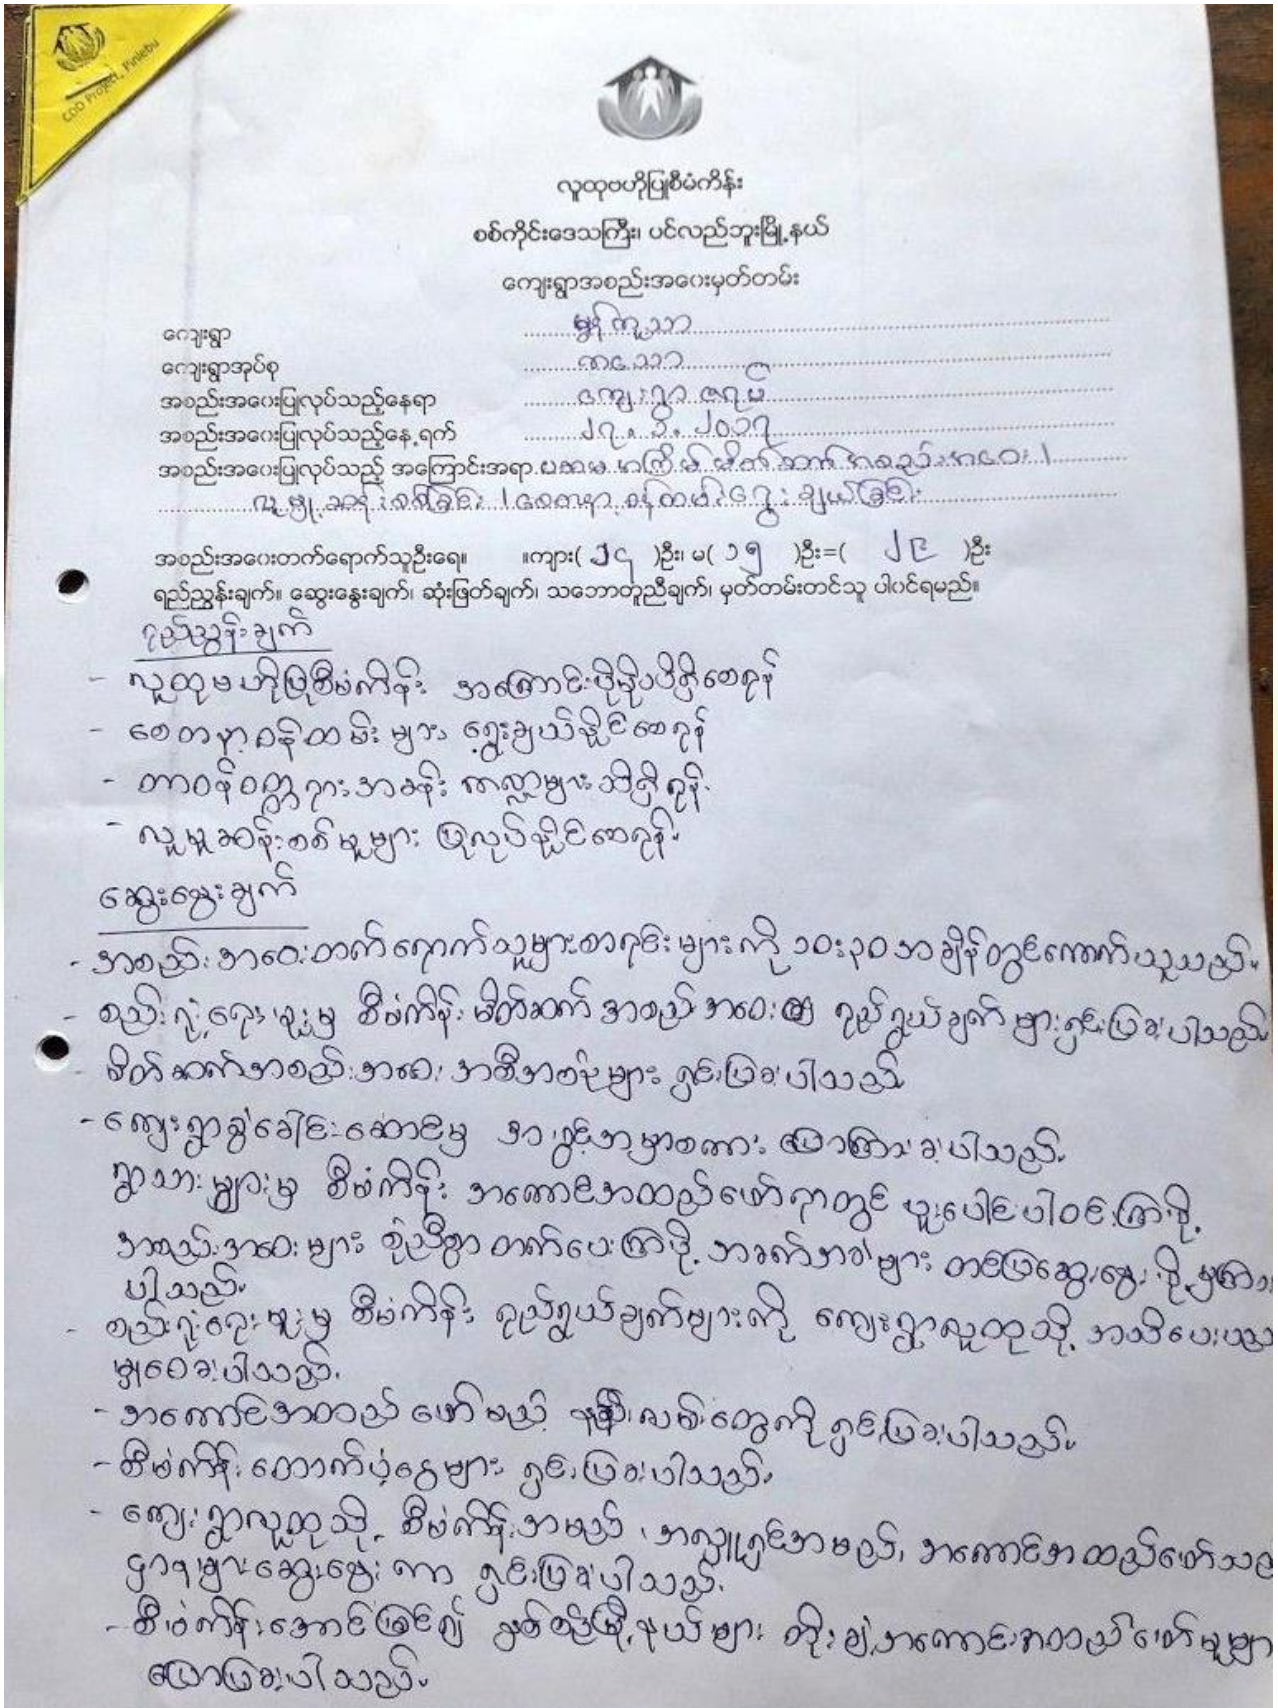 CDD Project, Pinlebu
လူထုဗဟိုပြုစီမံကိန်း
စစ်ကိုင်းဒေသကြီး၊ ပင်လည်ဘူးမြို့နယ်
ကျေးရွာအစည်းအဝေးမှတ်တမ်း
ကျေးရွာ
ကျေးရွာအုပ်စု
အစည်းအဝေးပြုလုပ်သည့်နေရာ ကျေးရွာ ဇရပ်
အစည်းအဝေးပြုလုပ်သည့်နေ့ရက် ၂၇.၁.၂၀၁၇
အစည်းအဝေးပြုလုပ်သည့် အကြောင်းအရာ ပထမ အကြိမ် မိတ်ဆက် အစည်းအဝေး၊
လူမှုဆန်းစစ်ခြင်း၊ စေတနာ့ဝန်ထမ်းရွေးချယ်ခြင်း
အစည်းအဝေးတက်ရောက်သူဦးရေ။ ။ကျား( ၁၄ )ဦး၊ မ( ၁၅ )ဦး=( ၂၉ )ဦး
ရည်ညွှန်းချက်။ ဆွေးနွေးချက်၊ ဆုံးဖြတ်ချက်၊ သဘောတူညီချက်၊ မှတ်တမ်းတင်သူ ပါဝင်ရမည်။
ရည်ညွှန်းချက်
- လူထုဗဟိုပြုစီမံကိန်း အကြောင်းပိုမိုသိရှိစေရန်
- စေတနာ့ဝန်ထမ်းများ ရွေးချယ်နိုင်စေရန်
- တာဝန်ဝတ္တရား အခန်း ကဏ္ဍများသိရှိရန်.
- လူမှုဆန်းစစ်မှုများ ပြုလုပ်နိုင်စေရန်.
ဆွေးနွေးချက်
- အစည်းအဝေးတက်ရောက်သူများစာရင်းများကို ၁၀:၃၀ အချိန်တွင်ကောက်ယူသည်.
- စည်းရုံးရေးမှူးမှ စီမံကိန်း မိတ်ဆက် အစည်းအဝေး ရည်ရွယ်ချက် များရှင်းပြခဲ့ပါသည်.
- မိတ်ဆက်အစည်းအဝေး အစီအစဉ်များ ရှင်းပြခဲ့ပါသည်
- ကျေးရွာခေါင်းဆောင်မှ အဖွင့်အမှာစကား ပြောကြားခဲ့ပါသည်.
ရွာသားများမှ စီမံကိန်း အကောင်အထည်ဖော်ရာတွင် ပူးပေါင်းပါဝင်ကြဖို့
အစည်းအဝေးများ စုံညီစွာ တက်ပေးကြဖို့ အခက်အခဲများ တင်ပြဆွေးနွေးဖို့
ပါသည်.
- စည်းရုံးရေးမှူးမှ စီမံကိန်း ရည်ရွယ်ချက်များကို ကျေးရွာလူထုသို့ အသိပေး
မျှဝေခဲ့ပါသည်.
- အကောင်အထည် ဖော်မည့် နည်းလမ်းတွေကို ရှင်းပြခဲ့ပါသည်.
- စီမံကိန်း ထောက်ပံ့ငွေများ ရှင်းပြခဲ့ပါသည်.
- ကျေးရွာလူထုသို့ စီမံကိန်းအမည်၊ အလှူရှင်အမည်၊ အကောင်အထည်ဖော်သည့်
ဌာနများဆွေးနွေးကာ ရှင်းပြခဲ့ပါသည်.
- စီမံကိန်းအောင်မြင်၍ နှစ်စဉ်မြို့နယ်များ တိုးချဲ့အကောင်အထည်ဖော်မှုများ
ပြောပြခဲ့ပါသည်.